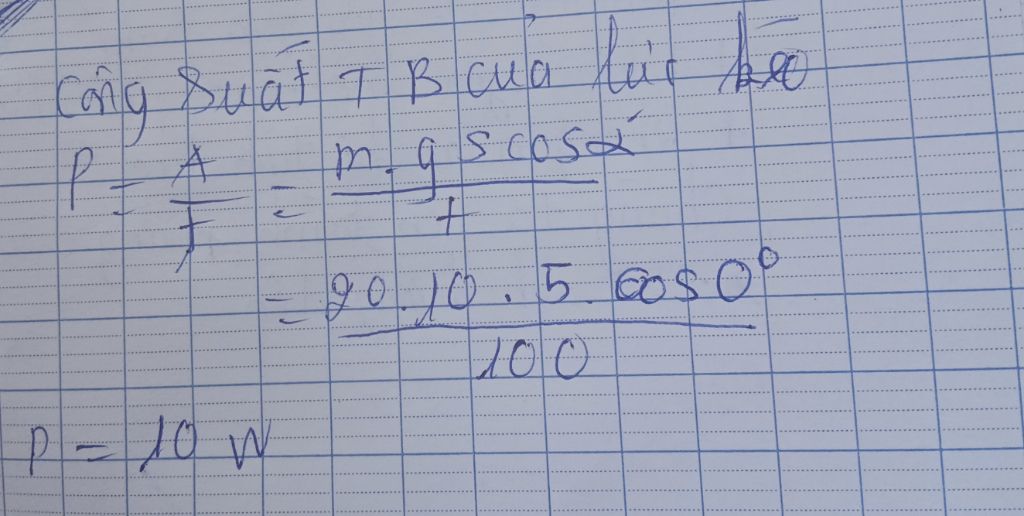 Công suất TB của lực kéo
P = A/t = m.g s cosα/t
= 20.10.5.cos0°/100
P = 10 W